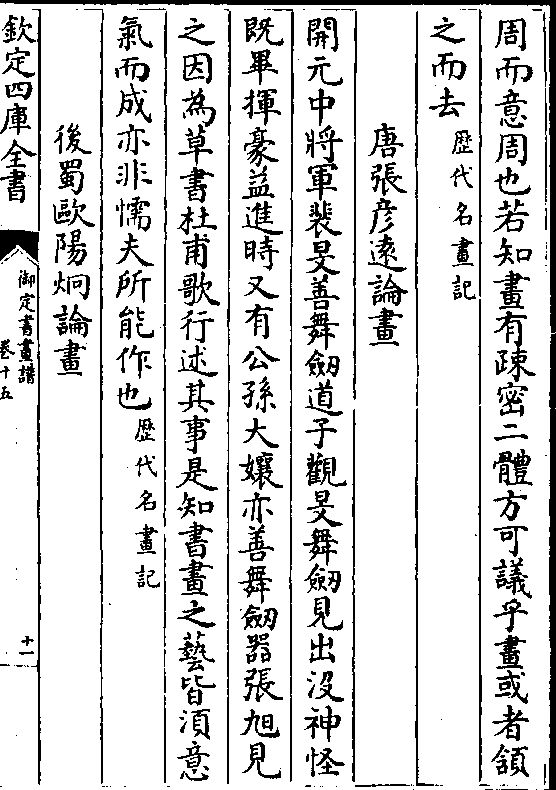 周而意周也若知畫有疎密二體方可議乎畫或者頷
之而去歴代名畫記
唐張彦遠論畫
開元中將軍裴旻善舞劒道子觀旻舞劒見出没神怪
既畢揮豪益進時又有公孫大孃亦善舞劒器張旭見
之因為草書杜甫歌行述其事是知書畫之藝皆湏意
氣而成亦非懦夫所能作也歴代名畫記
後蜀歐陽炯論畫
欽定四庫全書
御定書畫譜
卷十五
十一